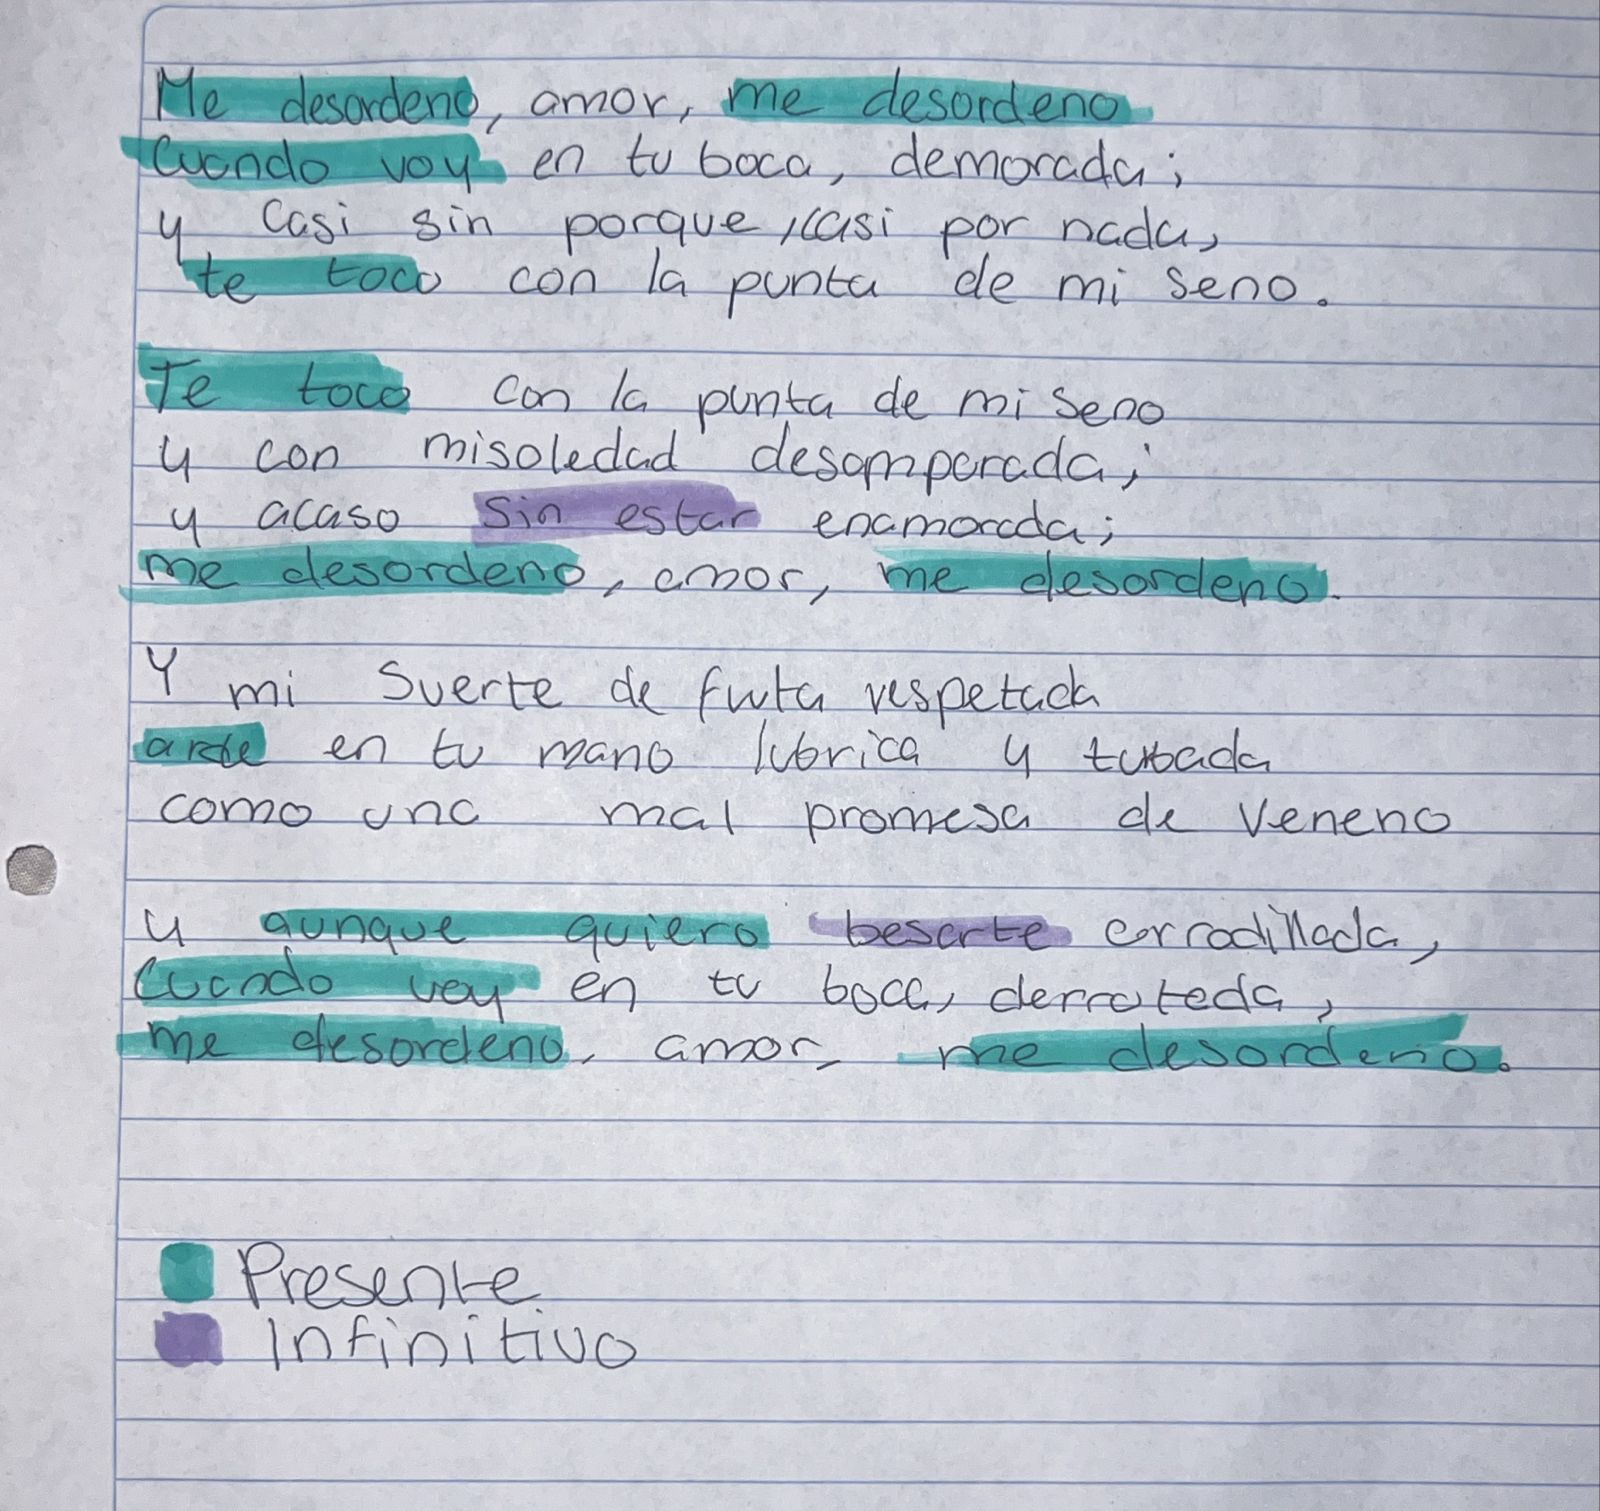 Me desordeno, amor, me desordeno
Cuando voy en tu boca, demorada;
y casi sin porque, casi por nada,
te toco con la punta de mi seno.
Te toco con la punta de mi seno
y con misoledad desamparada;
y acaso sin estar enamorada;
me desordeno, amor, me desordeno.
Y mi suerte de fruta respetada
arde en tu mano lubrica y turbada
como una mal promesa de veneno
y aunque quiero besarte arrodillada,
Cuando voy en tu boca, derrotada,
me desordeno, amor, me desordeno.
Presente
Infinitivo